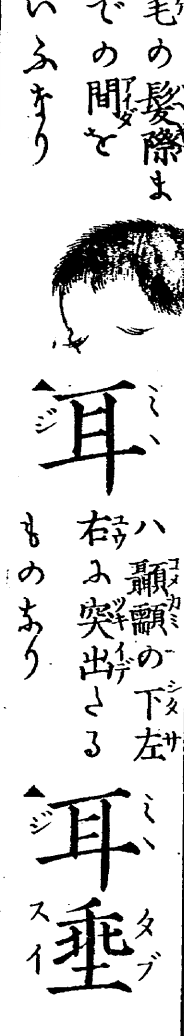 毛の髪際ま
での間を
いふなり
耳
ハ顳顬の下左
右に突出たる
ものなり
耳垂